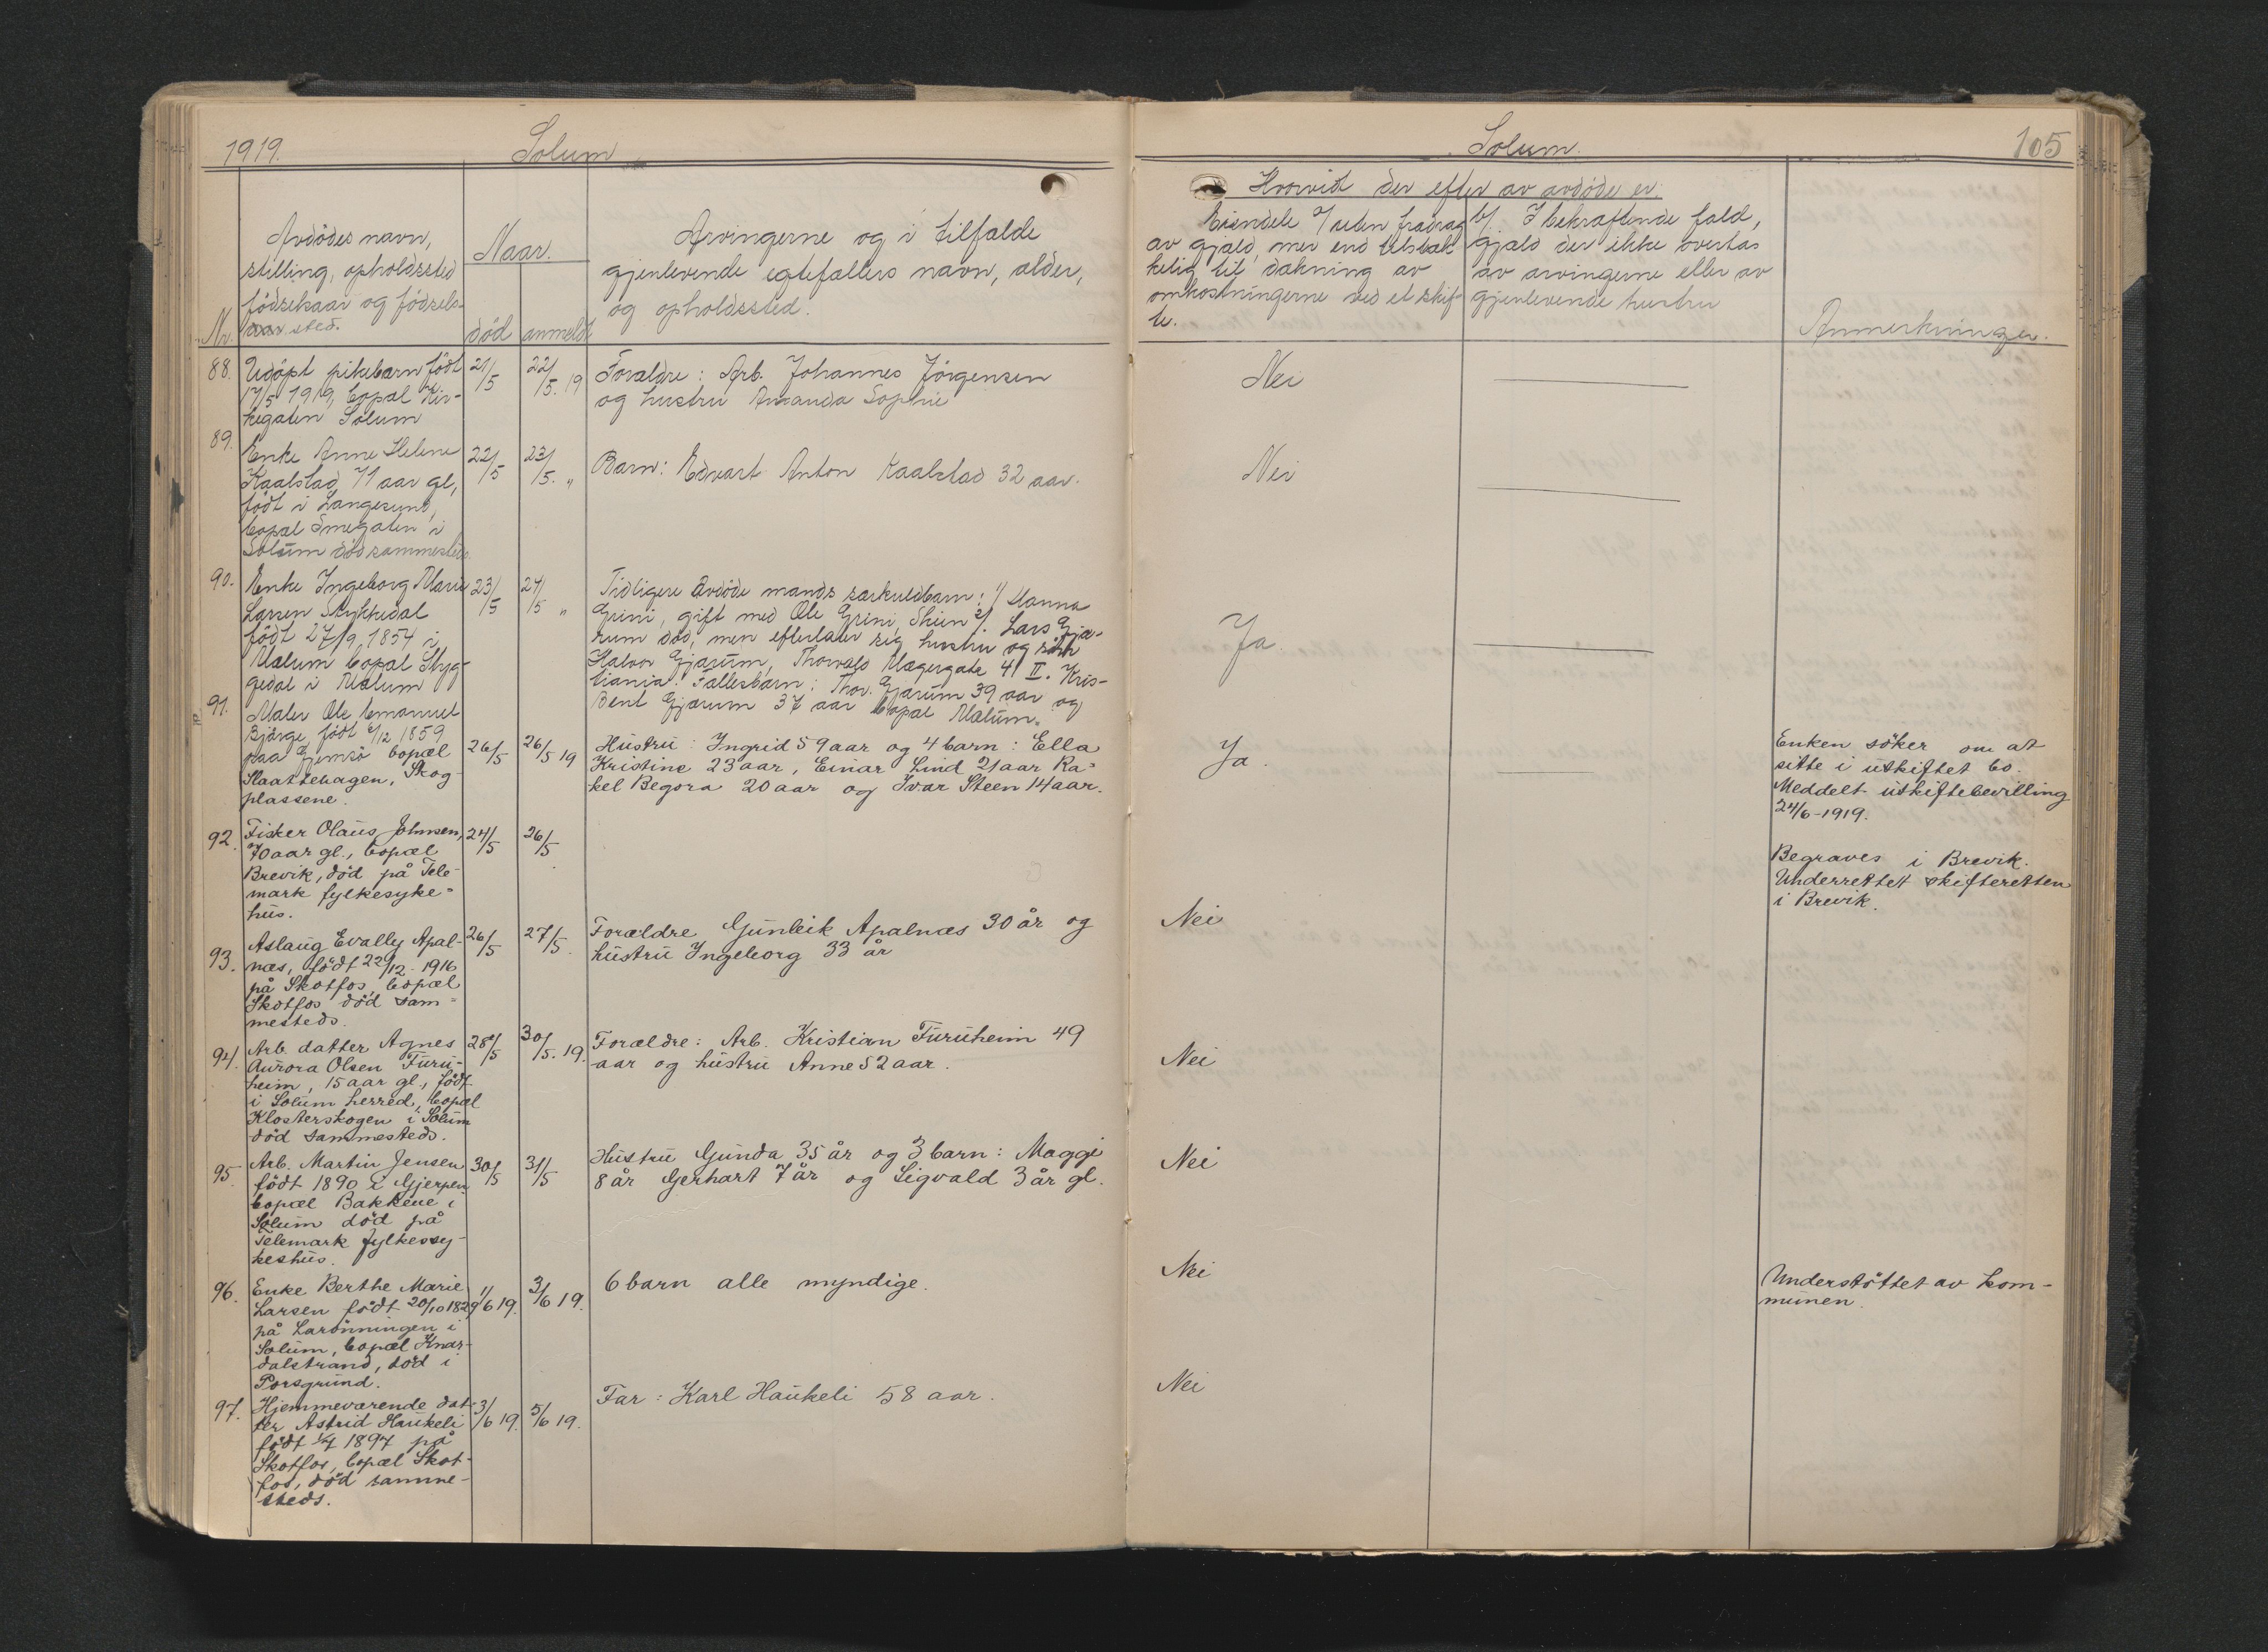 1919.
Solum
Nr.
Avdödes navn,
stilling, opholdssted
födselsaar og födsels-
sted.
Naar.
död
anmeldt
Arvingerne og i tilfælde
gjenlevende egtefællers navn, alder,
og opholdssted.
88.
Udöpt pikebarn født
17/5 1919, bopæl Kir-
kegaten Solum
21/5
22/5. 19
Foræeldre: Arb. Johannes Jörgensen
og hustru Amanda Sophie
89.
Enke Anne Helene
Kaalstad, 71 aar gl,
født i Langesund,
bopæl Smegaten i
Solum død sammesteds.
22/5
23/5. "
Barn: Edvart Anton Kaalstad 32 aar.
90.
Enke Ingeborg Marie
Larsen Stykkedal
født 27/9 1854 i
Mælum bopæl Styg-
gedal i Mælum
23/5
24/5 "
Tidligere avdøde mands særkuldbarn: 1/ Hanna
Grini, gift med Ole Grini, Skien 2/. Lars Gja-
rum död, men efterlater sig hustru og sönn
Halvor Gjærum, Thorvald Meyersgate 41 II. Kris-
tiania. Fællesbarn: Thor. Gjærum 39 aar og
Bent Gjærum 37 aar bopæl Mælum.
91.
Maler Ole Emanuel
Bjørge, født 6/12 1859
paa Gjemsö bopæl
Slaattehagen, Skog-
plassene.
26/5
26/5 19
Hustru: Ingrid 59 aar og 4 barn: Ella
Kristine 23 aar, Einar Lind 21 aar Ra-
kel Begora 20 aar og Ivar Steen 14 aar.
92.
Fisker Olaus Johnsen,
70 aar gl., bopæl
Brevik, död på Tele-
mark fylkesyke-
hus.
24/5
26/5
93.
Aslaug Evally Apal-
næs, født 22/12 1916
på Skotfos, bopæl
Skotfos död sam-
mesteds.
26/5
27/5.
Forældre Gunleik Apalnæs 30 år og
hustru Ingeborg 33 år
94.
Arb. datter Agnes
Aurora Olsen Furu-
heim, 15 aar gl., født
i Solum herred, bopæl
Klosterskogen i Solum
död sammesteds.
28/5
30/5. 19.
Forældre: Arb. Kristian Furuheim 49
aar og hustru Anne 52 aar.
95.
Arb. Martin Jensen
født 1890 i Gjerpen
bopæl Bakkene i
Solum död på
Telemark fylkessy-
kehus.
30/5
31/5
Hustru Gunda 35 år og 3 barn: Maggi
8 år Gerhart 7 år og Sigvald 3 år gl.
96.
Enke Berthe Marie
Larsen født 20/10 1829
på Larönningen i
Solum, bopæl Knar-
dalstrand, död i
Porsgrund.
1/6 19.
3/6 19.
6 barn alle myndige.
97.
Hjemmeværende dat-
ter Astrid Haukeli
født 1/7 1897 på
Skotfos, bopæl Skot-
fos, död samme-
steds.
3/6 19.
5/6 19.
Far: Karl Haukeli 58 aar.
Solum.
105
Hvorvidt der efter av avdöde er.
Eiendele a/ uden fradrag
av gjæld, mer end tilstræk-
kelig til dækning av
omkostningerne ved et skif-
te.
b/. I bekræftende fald,
gjæld der ikke overtas
av arvingerne eller av
gjenlevende hustru
Anmerkninger.
Nei
Nei
Ja.
Ja.
Enken söker om at
sitte i uskiftet bo.
Meddelt uskiftebevilling
24/6-1919.
Begraves i Brevik.
Underrettet skifteretten
i Brevik.
Nei
Nei
Nei
Nei
Understöttet av kom-
munen.
Nei